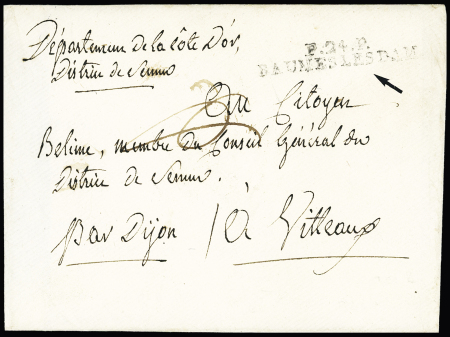 Département de la côte D'or,
District de Semur
P.24.P.
BAUMES LES DAM
Au Citoyen
Belime, membre du Conseil Général du
District de Semur.
par Dijon / à Vitteaux